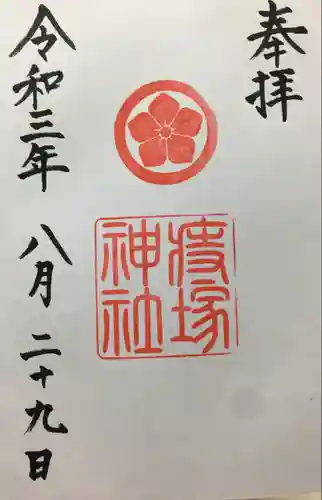 奉拝
疫塚
神社
令和三年 八月二十九日